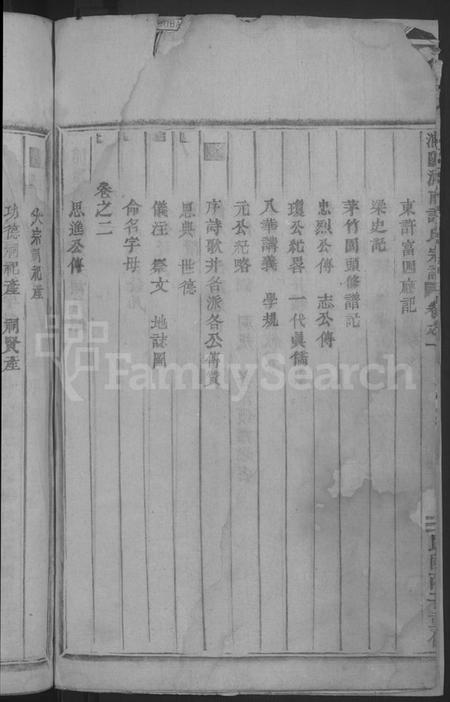 東許富國廳記
梁史記
茅竹園頭修譜記
忠烈公傳 志公傳
瓊公紀畧 一代眞儒
八華講義 學規
元公紀略
序詩歌并各派各公傳賛
恩典 世德
儀注 祭文 地誌圖
命名字母
卷之二
思進公傳
大宗祠祀產
功德祠祀產 祠賢產
FamilySearch